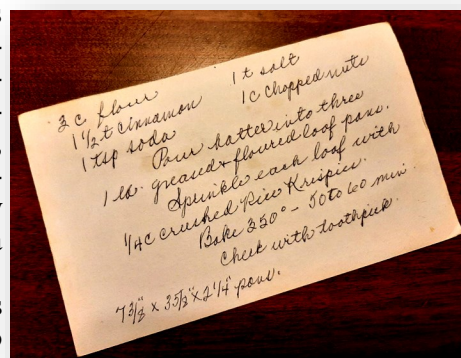 3 c flour 1 t salt
1 1/2 t cinnamon 1c chopped nuts
1 tsp soda
Pour batter into three
1 lb. greased + floured loaf pans.
Sprinkle each loaf with
1/4 c crushed Rice Krispies.
Bake 350° - 50 to 60 min.
Check with toothpick.
x 2 1/4" pans.